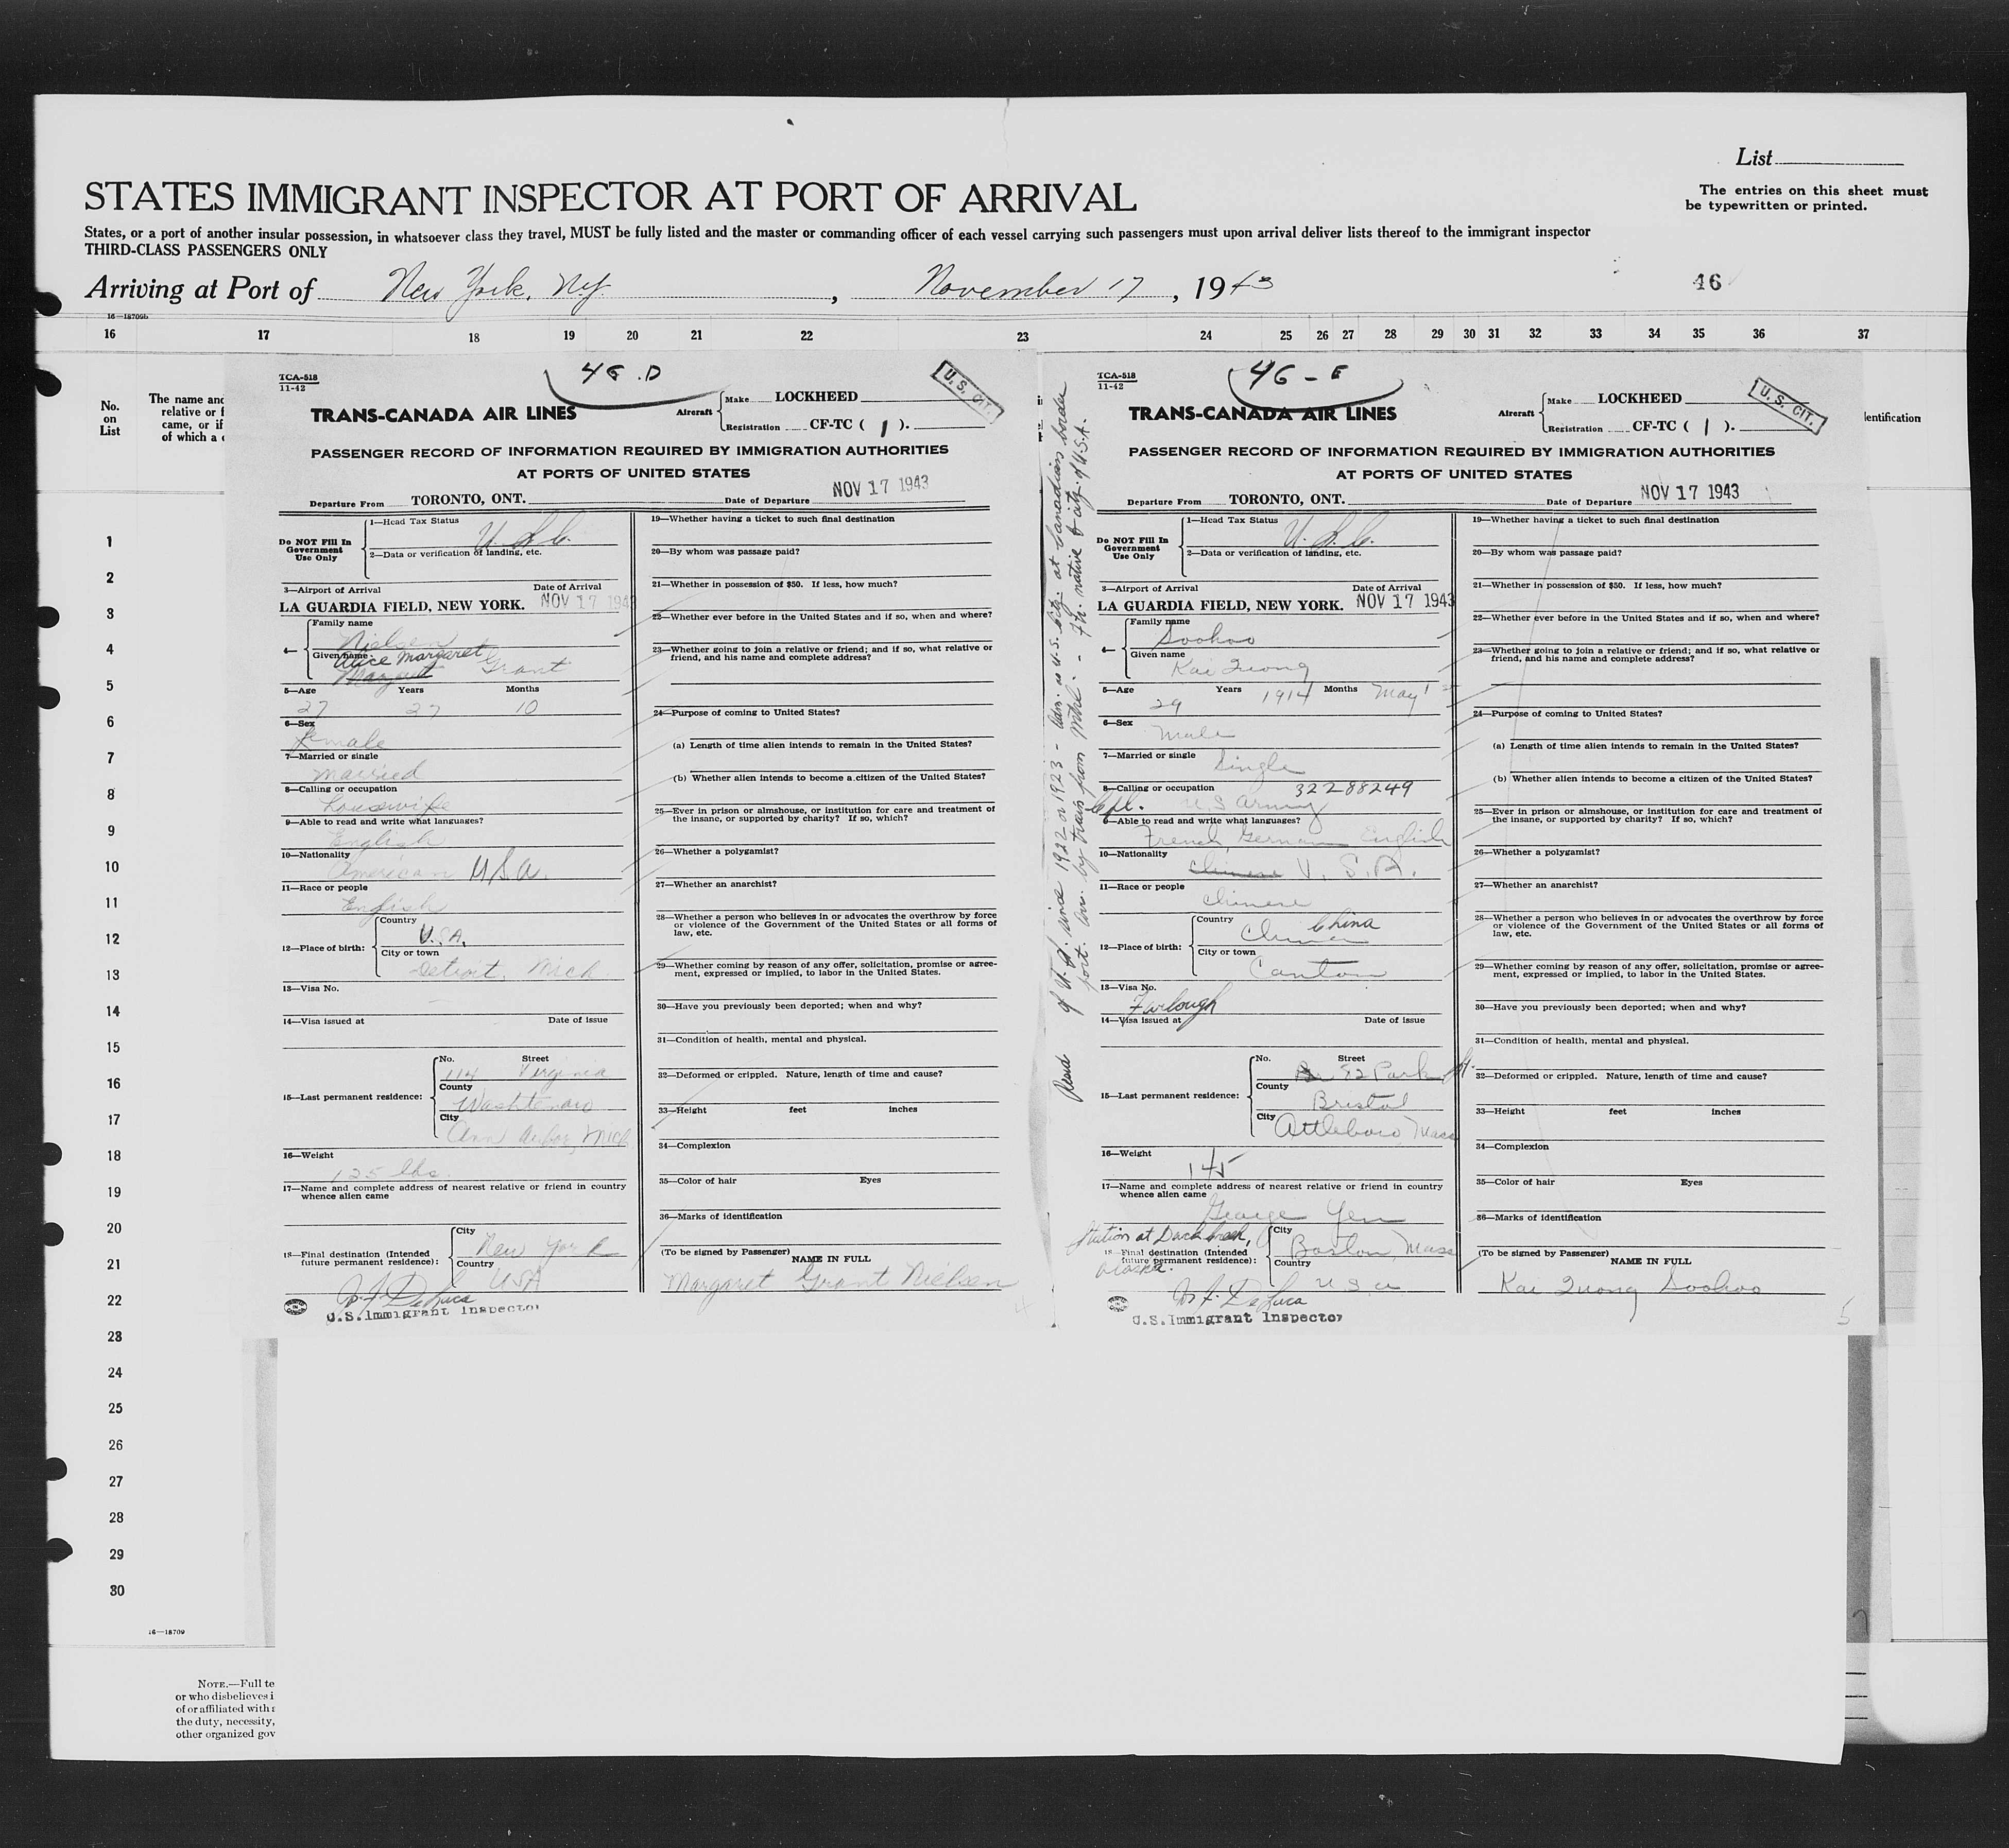 List
STATES IMMIGRANT INSPECTOR AT PORT OF ARRIVAL
The entries on this sheet must
be typewritten or printed.
States, or a port of another insular possession, in whatsoever class they travel, MUST be fully listed and the master or commanding officer of each vessel carrying such passengers must upon arrival deliver lists thereof to the immigrant inspector
THIRD-CLASS PASSENGERS ONLY
Arriving at Port of New York, N.Y. , November 17 , 1943
46
16—18709b
16 17 18 19 20 21 22 23 24 25 26 27 28 29 30 31 32 33 34 35 36 37
No.
on
List
The name and
relative or f
came, or if
of which a c
entification
1
2
3
4
5
6
7
8
9
10
11
12
13
14
15
16
17
18
19
20
21
22
23
24
25
26
27
28
29
30
16—18709
NOTE.—Full te
or who disbelieves i
of or affiliated with
the duty, necessity,
other organized gov
TCA-518
11-42
46 . D
U. S. CIT.
TRANS-CANADA AIR LINES
Aircraft
Make LOCKHEED
Registration CF-TC ( 1 ).
PASSENGER RECORD OF INFORMATION REQUIRED BY IMMIGRATION AUTHORITIES
AT PORTS OF UNITED STATES
Departure From TORONTO, ONT. Date of Departure NOV 17 1943
Do NOT Fill In
Government
Use Only
1—Head Tax Status
U. S. C.
2—Data or verification of landing, etc.
3—Airport of Arrival Date of Arrival
LA GUARDIA FIELD, NEW YORK. NOV 17 1943
4— Family name
Nielsen
Given name
Alice Margaret
Margaret Grant
5—Age Years Months
27 27 10
6—Sex
female
7—Married or single
married
8—Calling or occupation
housewife
9—Able to read and write what languages?
English
10—Nationality
American U.S.A.
11—Race or people
English
12—Place of birth:
Country
U.S.A.
City or town
Detroit, Mich
13—Visa No.
14—Visa issued at Date of issue
15—Last permanent residence:
No. Street
114 Virginia
County
Washtenaw
City
Ann Arbor, Mich
16—Weight
125 lbs.
17—Name and complete address of nearest relative or friend in country
whence alien came
18—Final destination (Intended
future permanent residence):
City
New York
Country
USA
DeLuca
U.S.Immigrant Inspector
19—Whether having a ticket to such final destination
20—By whom was passage paid?
21—Whether in possession of $50. If less, how much?
22—Whether ever before in the United States and if so, when and where?
23—Whether going to join a relative or friend; and if so, what relative or
friend, and his name and complete address?
24—Purpose of coming to United States?
(a) Length of time alien intends to remain in the United States?
(b) Whether alien intends to become a citizen of the United States?
25—Ever in prison or almshouse, or institution for care and treatment of
the insane, or supported by charity? If so, which?
26—Whether a polygamist?
27—Whether an anarchist?
28—Whether a person who believes in or advocates the overthrow by force
or violence of the Government of the United States or all forms of
law, etc.
29—Whether coming by reason of any offer, solicitation, promise or agree-
ment, expressed or implied, to labor in the United States.
30—Have you previously been deported; when and why?
31—Condition of health, mental and physical.
32—Deformed or crippled. Nature, length of time and cause?
33—Height feet inches
34—Complexion
35—Color of hair Eyes
36—Marks of identification
(To be signed by Passenger)
NAME IN FULL
Margaret Grant Nielsen
4
Resid of U.S. since 1922 or 1923 - Adm. as U.S. Citz. at Canadian border
port. Arr. by train from Mtrl. - Fh. native & citz. of U.S.A.
TCA-518
11-42
46 - E
U. S. CIT.
TRANS-CANADA AIR LINES
Aircraft
Make LOCKHEED
Registration CF-TC ( 1 ).
PASSENGER RECORD OF INFORMATION REQUIRED BY IMMIGRATION AUTHORITIES
AT PORTS OF UNITED STATES
Departure From TORONTO, ONT. Date of Departure NOV 17 1943
Do NOT Fill In
Government
Use Only
1—Head Tax Status
U. S. C.
2—Data or verification of landing, etc.
3—Airport of Arrival Date of Arrival
LA GUARDIA FIELD, NEW YORK. NOV 17 1943
4— Family name
Soohoo
Given name
Kai Quong
5—Age Years Months
29 1914 May 1
6—Sex
male
7—Married or single
Single
8—Calling or occupation 32288249
Cpl. US Army
9—Able to read and write what languages?
French, German English
10—Nationality
Chinese U. S. A.
11—Race or people
Chinese
12—Place of birth:
Country
China China
City or town
Canton
13—Visa No.
Furlough
14—Visa issued at Date of issue
15—Last permanent residence:
No. Street
72 Park St.
County
Bristol
City
Attleboro Mass
16—Weight
145
17—Name and complete address of nearest relative or friend in country
whence alien came
George Yen
Station at
Alaska.
18—Final destination (Intended
future permanent residence):
City
Boston, Mass
Country
U S A
DeLuca
U.S.Immigrant Inspector
19—Whether having a ticket to such final destination
20—By whom was passage paid?
21—Whether in possession of $50. If less, how much?
22—Whether ever before in the United States and if so, when and where?
23—Whether going to join a relative or friend; and if so, what relative or
friend, and his name and complete address?
24—Purpose of coming to United States?
(a) Length of time alien intends to remain in the United States?
(b) Whether alien intends to become a citizen of the United States?
25—Ever in prison or almshouse, or institution for care and treatment of
the insane, or supported by charity? If so, which?
26—Whether a polygamist?
27—Whether an anarchist?
28—Whether a person who believes in or advocates the overthrow by force
or violence of the Government of the United States or all forms of
law, etc.
29—Whether coming by reason of any offer, solicitation, promise or agree-
ment, expressed or implied, to labor in the United States.
30—Have you previously been deported; when and why?
31—Condition of health, mental and physical.
32—Deformed or crippled. Nature, length of time and cause?
33—Height feet inches
34—Complexion
35—Color of hair Eyes
36—Marks of identification
(To be signed by Passenger)
NAME IN FULL
Kai Quong Soohoo
5